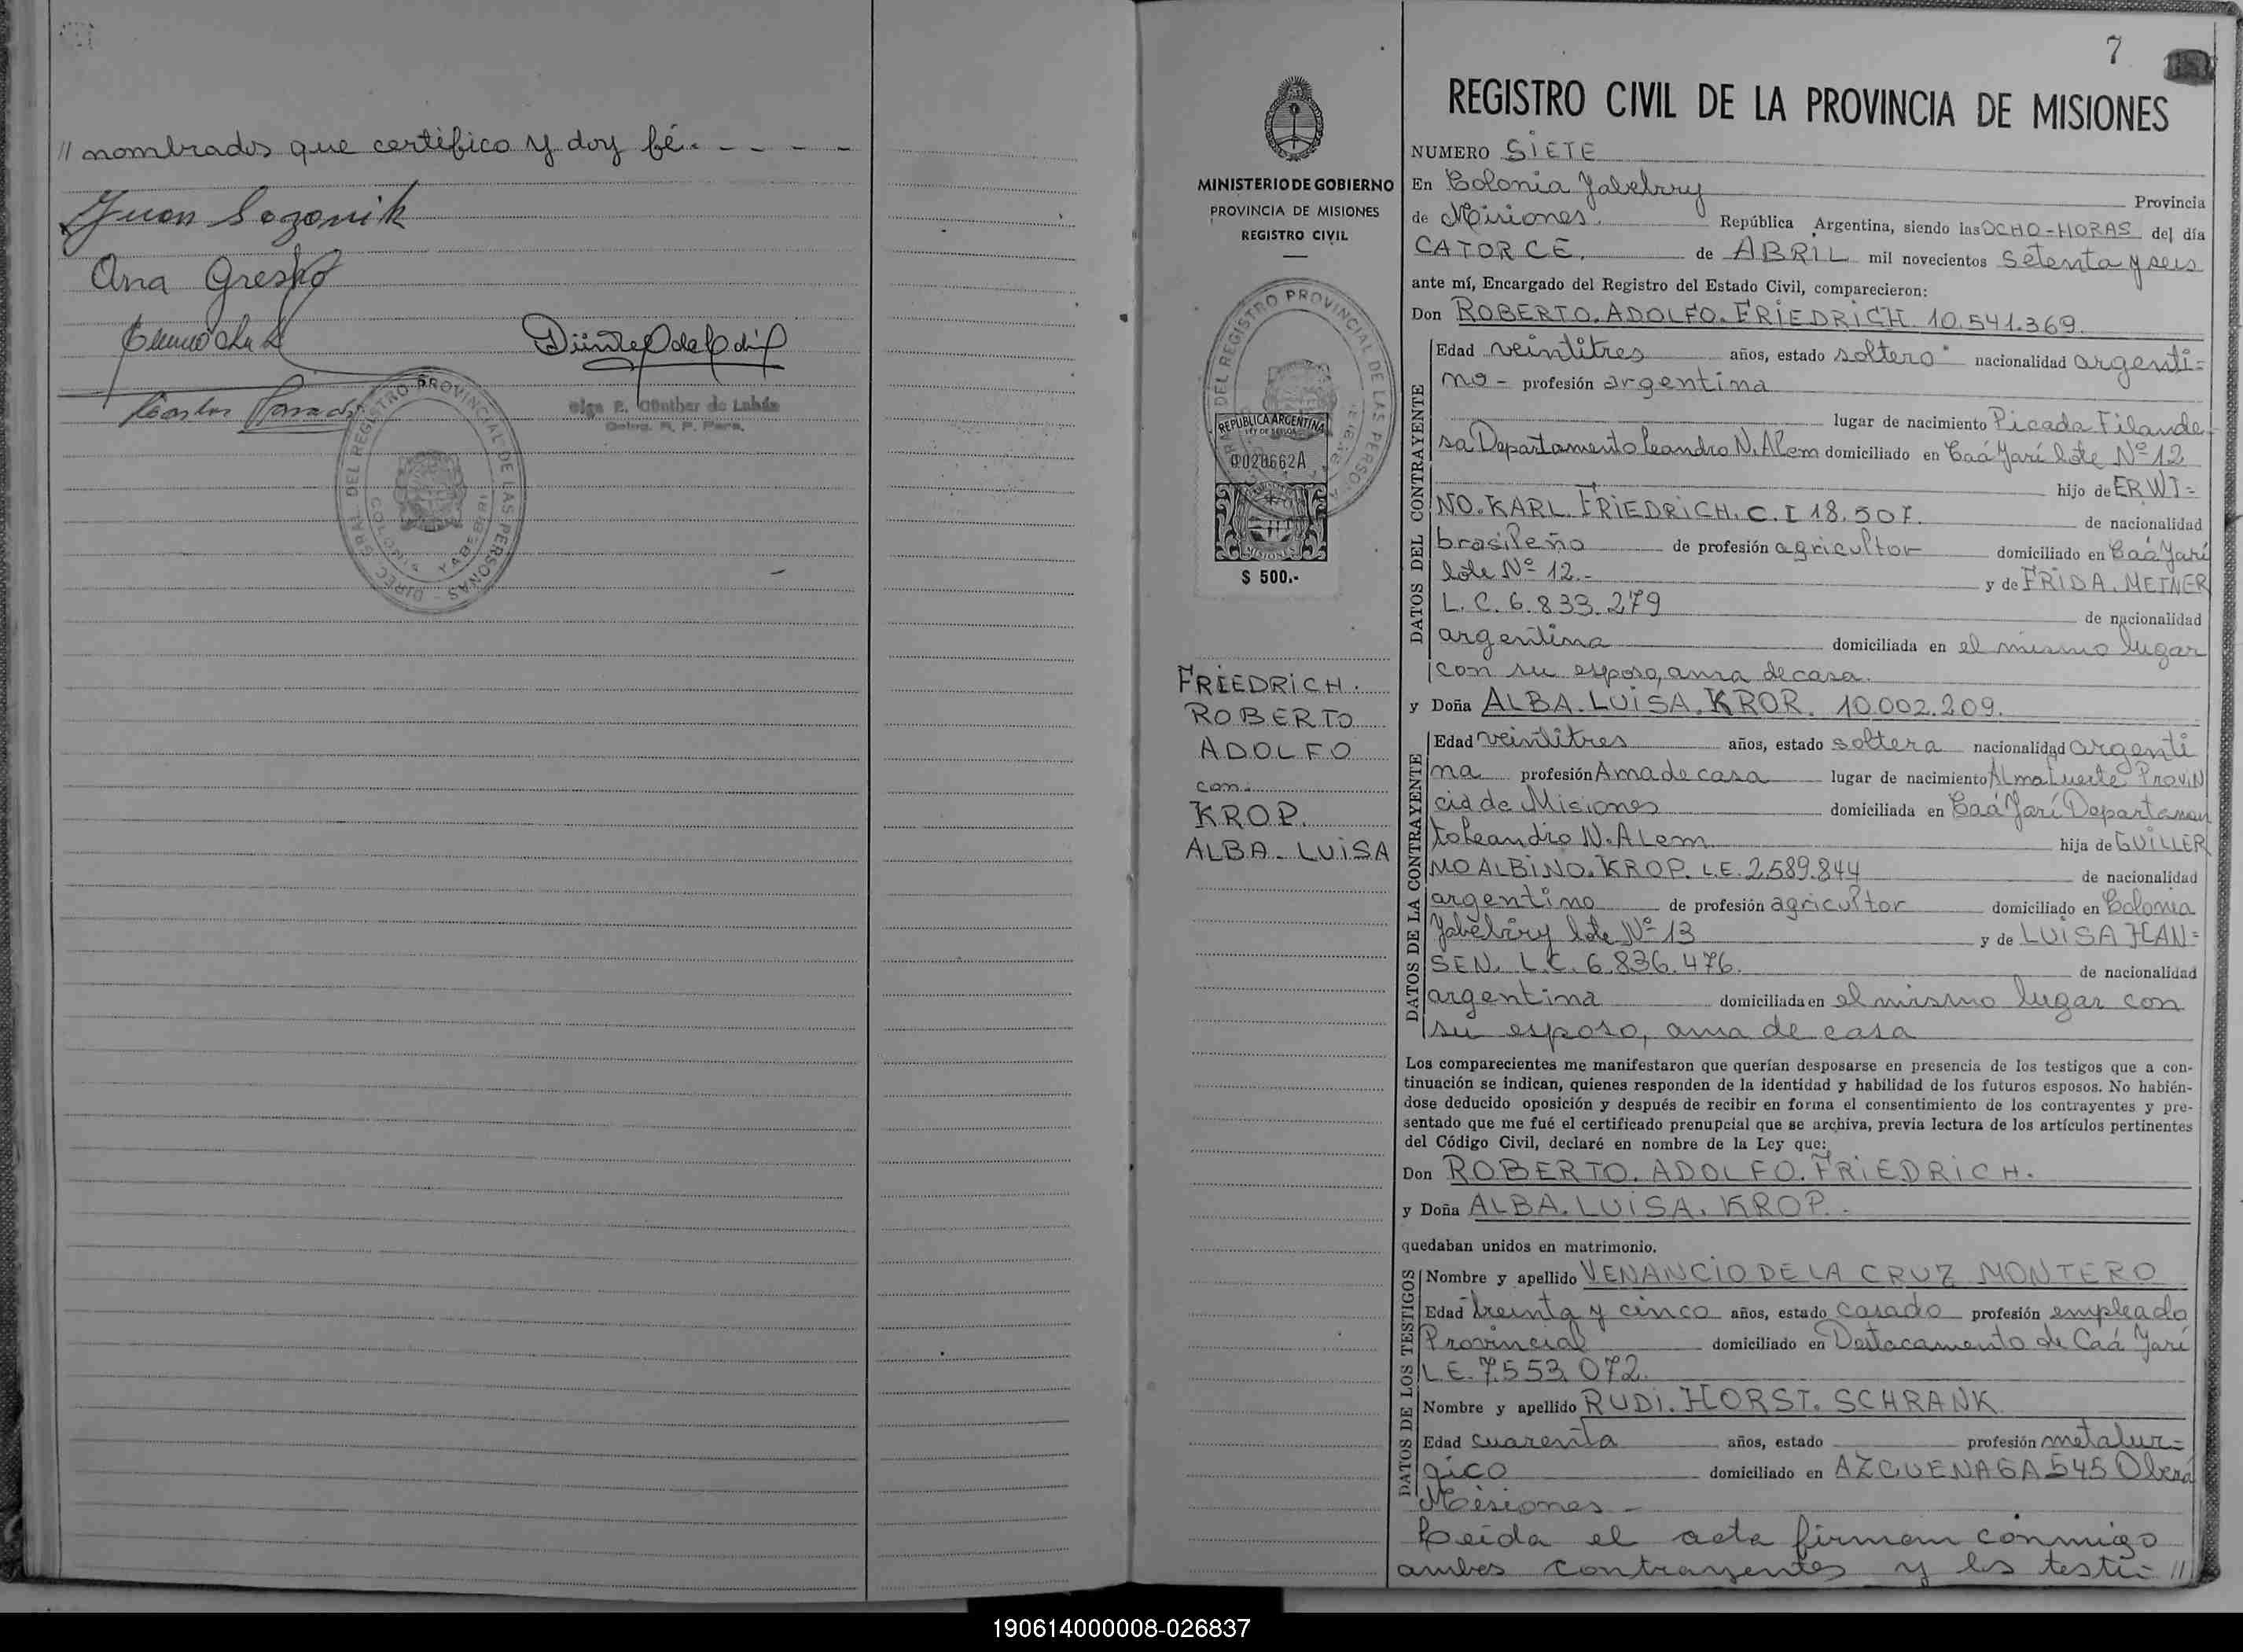 // nombrados que certifico y doy fé. - - - -
Juan Sozonik
Ana Gresko
Olga E. Günther de Labán
DIREC. GRAL. DEL REGISTRO PROVINCIAL DE LAS PERSONAS -
COLONIA YABEBIRI
MINISTERIO DE GOBIERNO
PROVINCIA DE MISIONES
REGISTRO CIVIL
DEL REGISTRO PROVINCIAL DE LAS PERSO
REPUBLICA ARGENTINA
LEY DE SELLOS
0020662A
MISIONES
$ 500.-
FRIEDRICH.
ROBERTO
ADOLFO
con.
KROP.
ALBA. LUISA
7
REGISTRO CIVIL DE LA PROVINCIA DE MISIONES
NUMERO SIETE
En Colonia Yabebiry Provincia
de Misiones. República Argentina, siendo las OCHO-HORAS del día
CATORCE. de ABRIL mil novecientos setenta y seis
ante mí, Encargado del Registro del Estado Civil, comparecieron:
Don ROBERTO. ADOLFO. FRIEDRICH. 10.541.369.
DATOS DEL CONTRAYENTE
Edad veintitres años, estado soltero nacionalidad argenti=
no - profesión argentina
lugar de nacimiento Picada Filande
sa Departamento Leandro N. Alem domiciliado en Caá Yarí lote Nº 12
hijo de ERWI=
NO. KARL. FRIEDRICH. C. I 18.507. de nacionalidad
brasileño de profesión agricultor domiciliado en Caá Yarí
lote Nº 12.- y de FRIDA. METNER
L. C. 6.833.279
de nacionalidad
argentina domiciliada en el mismo lugar
con su esposo, ama de casa.
y Doña ALBA. LUISA. KROP. 10.002.209.
DATOS DE LA CONTRAYENTE
Edad veintitres años, estado soltera nacionalidad argenti
na profesión Ama de casa lugar de nacimiento Alma Fuerte Provin
cia de Misiones domiciliada en Caá Yarí Departamen
to Leandro N. Alem hija de GUILLER
MO ALBINO. KROP. L.E. 2.589.844 de nacionalidad
argentino de profesión agricultor domiciliado en Colonia
Yabebiry lote Nº 13 y de LUISA HAN=
SEN. L.C. 6.836.476. de nacionalidad
argentina domiciliada en el mismo lugar con
su esposo, ama de casa
Los comparecientes me manifestaron que querían desposarse en presencia de los testigos que a con-
tinuación se indican, quienes responden de la identidad y habilidad de los futuros esposos. No habién-
dose deducido oposición y después de recibir en forma el consentimiento de los contrayentes y pre-
sentado que me fué el certificado prenupcial que se archiva, previa lectura de los artículos pertinentes
del Código Civil, declaré en nombre de la Ley que:
Don ROBERTO. ADOLFO. FRIEDRICH.
y Doña ALBA. LUISA. KROP.
quedaban unidos en matrimonio.
DATOS DE LOS TESTIGOS
Nombre y apellido VENANCIO DE LA CRUZ MONTERO
Edad treinta y cinco años, estado casado profesión empleado
Provincial domiciliado en Destacamento de Caá Yarí
L.E. 7.553.072.
Nombre y apellido RUDI. HORST. SCHRANK
Edad cuarenta años, estado profesión metalur=
gico domiciliado en AZCUENAGA 545 Oberá
Misiones -
Leída el acta firman conmigo
ambos contrayentes y los testi- //
190614000008-026837